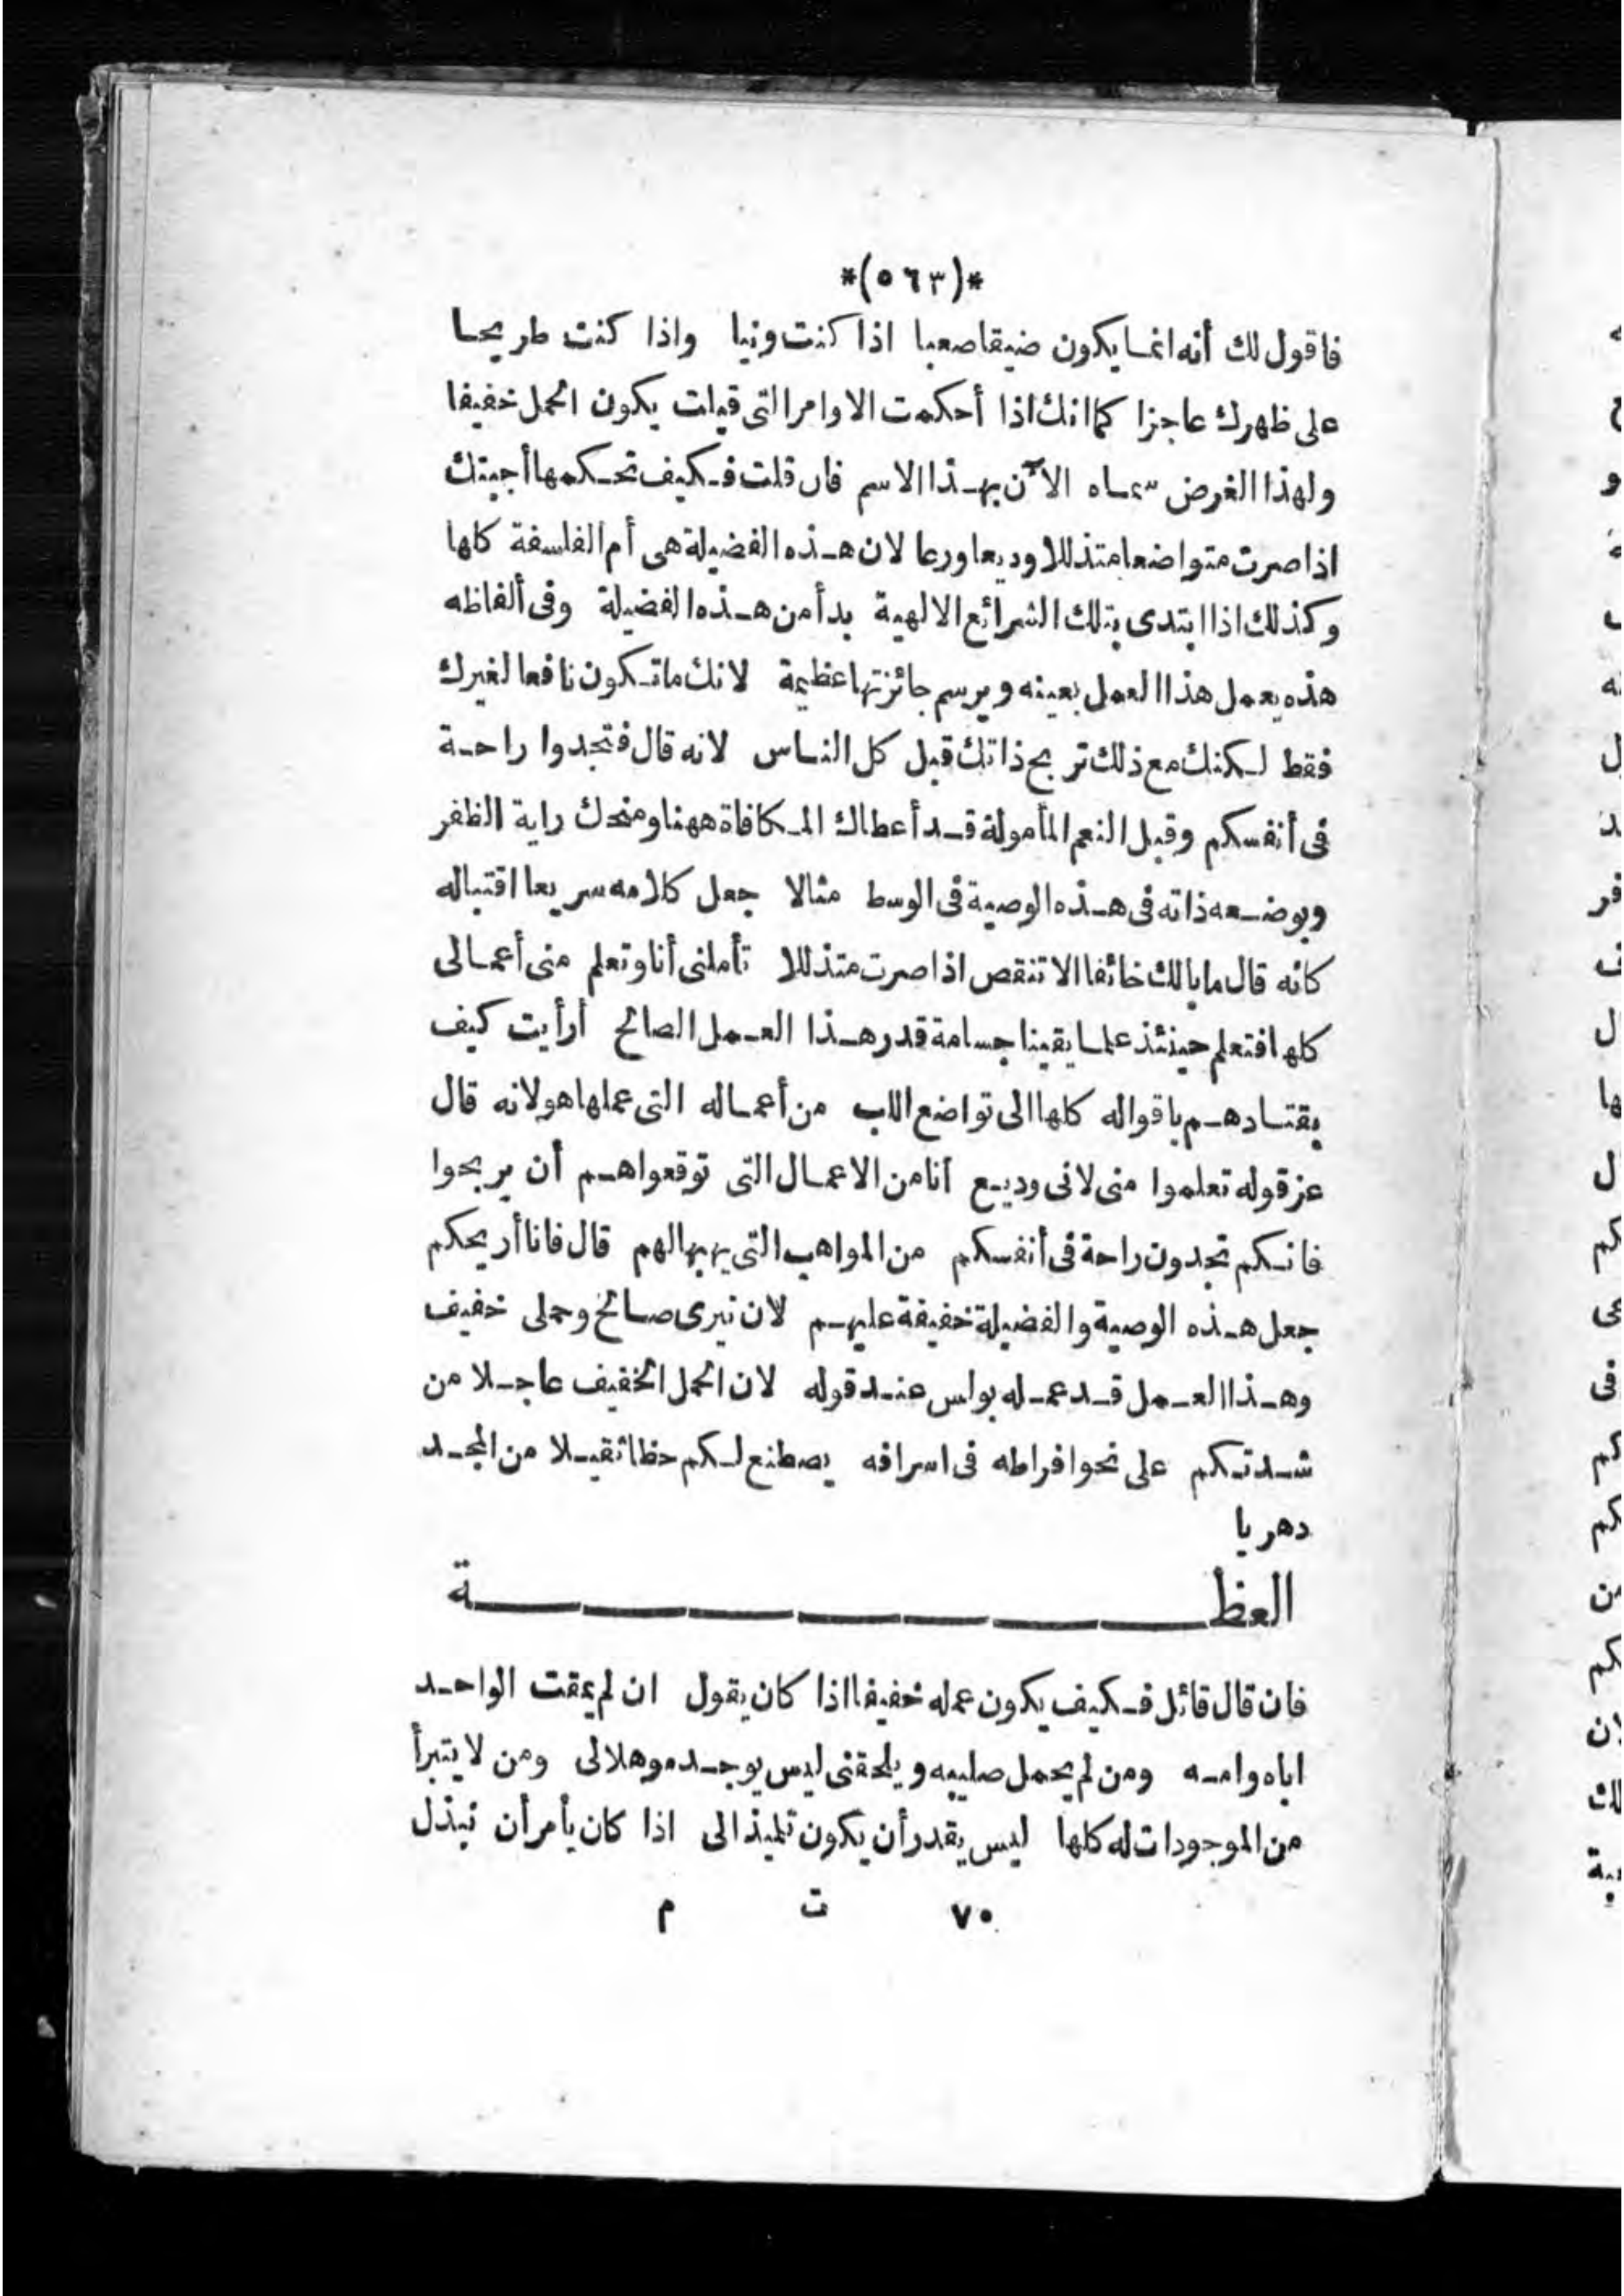 *(٥٦٣)*
فاقول لك أنه انما يكون ضيقا صعبا اذا كنت ونيا واذا كنت طريحا
على ظهرك عاجزا كما انك اذا أحكمت الاوامر التى قيلت يكون الحمل خفيفا
ولهذا الغرض سماه الآن بهذا الاسم فان قلت فكيف تحكمها أجبتك
اذا صرت متواضعا متذللا وديعا ورعا لان هذه الفضيلة هى أم الفلسفة كلها
وكذلك اذا ابتدى بتلك الشرائع الالهية بدأ من هذه الفضيلة وفى ألفاظه
هذه يعمل هذا العمل بعينه ويرسم جائزتها عظيمة لانك ما تكون نافعا لغيرك
فقط لكنك مع ذلك تريح ذاتك قبل كل الناس لانه قال فتجدوا راحة
فى أنفسكم وقبل النعم المأمولة قد أعطاك المكافاة ههنا ومنحك راية الظفر
وبوضعه ذاته فى هذه الوصية فى الوسط مثالا جعل كلامه سريعا اقتباله
كأنه قال ما بالك خائفا الا تنقص اذا صرت متذللا تأملنى أنا وتعلم منى أعمالى
كلها فتعلم حينئذ علما يقينا جسامة قدر هذا العمل الصالح أرأيت كيف
يقتادهم باقواله كلها الى تواضع اللب من أعماله التى عملها هو لانه قال
عز قوله تعلموا منى لانى وديع أنا من الاعمال التى توقعوا هم أن يربحوا
فانكم تجدون راحة فى أنفسكم من المواهب التى يهبها لهم قال فانا أريحكم
جعل هذه الوصية والفضيلة خفيفة عليهم لان نيرى صالح وحملى خفيف
وهذا العمل قد عمله بولس عند قوله لان الحمل الخفيف عاجلا من
شدتكم على نحو افراطه فى اسرافه يصطنع لكم حظا ثقيلا من المجد
دهريا
العظة
فان قال قائل فكيف يكون عمله خفيفا اذا كان يقول ان لم يمقت الواحد
اباه وامه ومن لم يحمل صليبه ويلحقنى ليس يوجد موهلا لى ومن لا يتبرأ
من الموجودات له كلها ليس يقدر أن يكون تلميذا لى اذا كان يأمر أن نبذل
٧٠ ت م